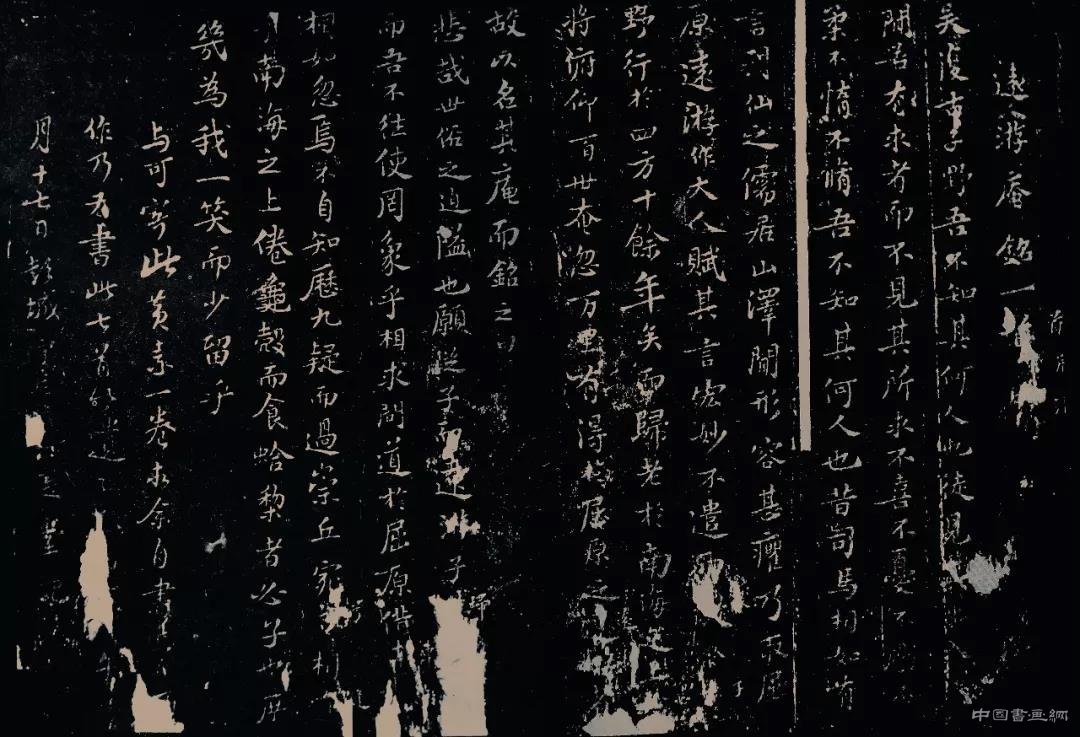 遠游庵銘一首
吳復古子野吾不知其何人也徒見
間若有求者而不見其所求不喜不憂不
柔不惰不脩吾不知其何人也昔司馬相如有
言列仙之儒居山澤間形容甚臞乃取屈
原遠游作大人賦其言宏妙不遣而
野行於四方十餘年矣而歸老於南海之上
將俯仰百世奄忽万里有得於屈原之
故以名其庵而銘之曰
悲哉世俗之迫隘也願從子而遠游子歸
而吾不往使罔象乎相求問道於屈原借車
相如忽焉不自知歷九疑而過崇丘宛兮相
南海之上倦龜殼而食蛤棃者必子也庶
幾為我一笑而少留乎
与可寄此黄素一卷求余自書
作乃为書此七首以遺
月十七日彭城
中国書画網